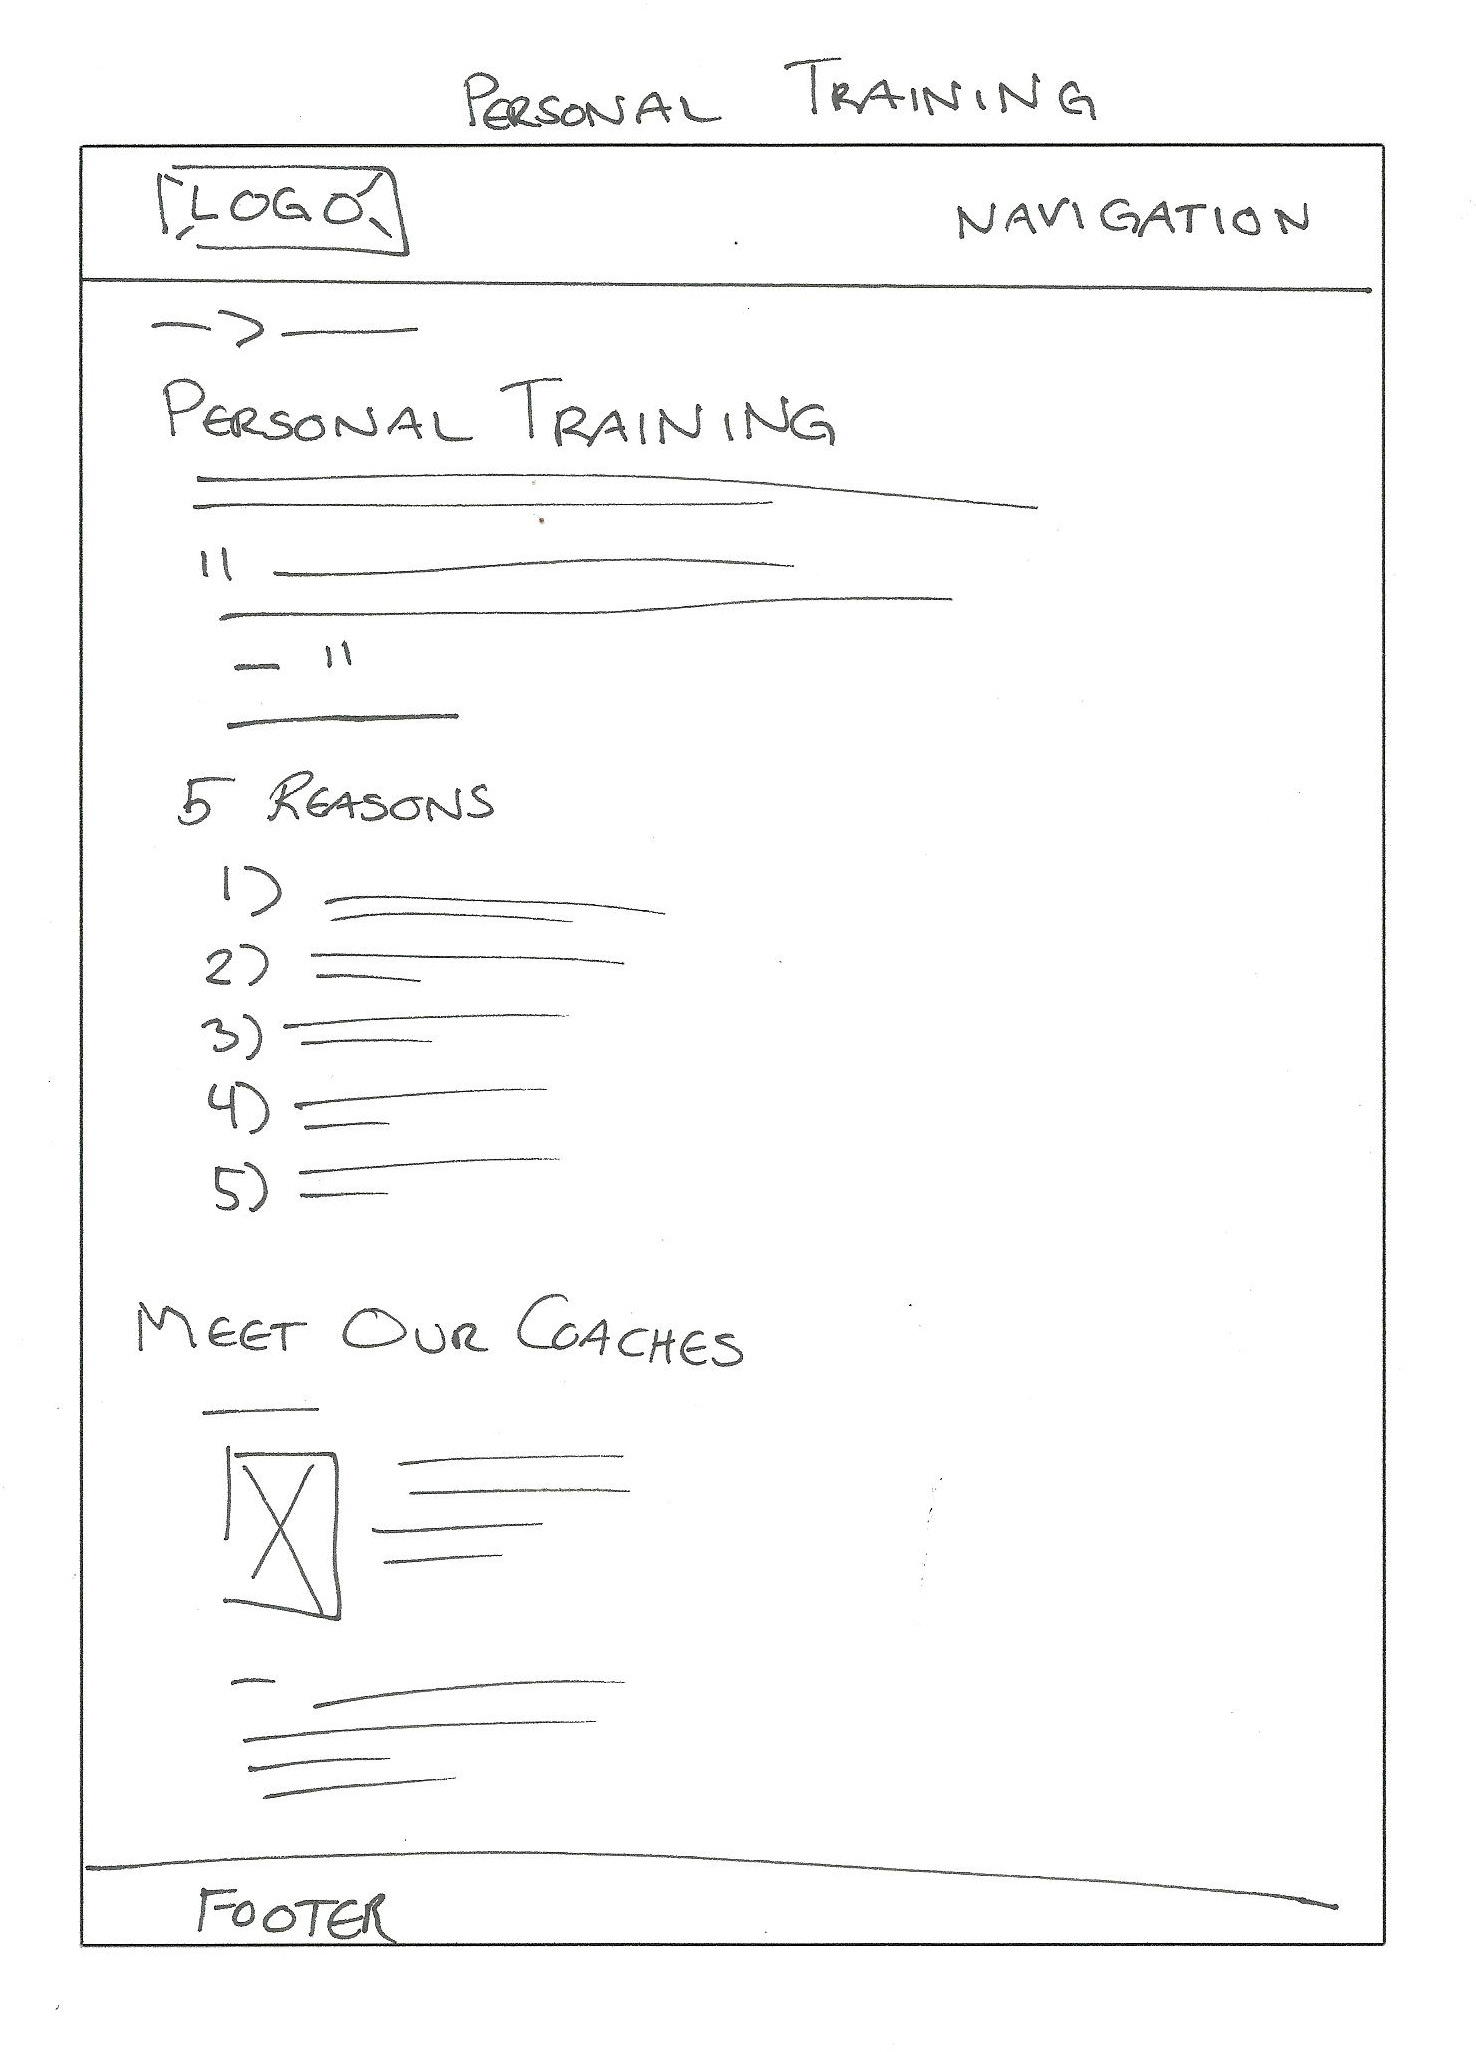 PERSONAL TRAINING
LOGO
NAVIGATION
—>—
PERSONAL TRAINING
"
"
5 REASONS
1)
2)
3)
4)
5)
MEET OUR COACHES
FOOTER